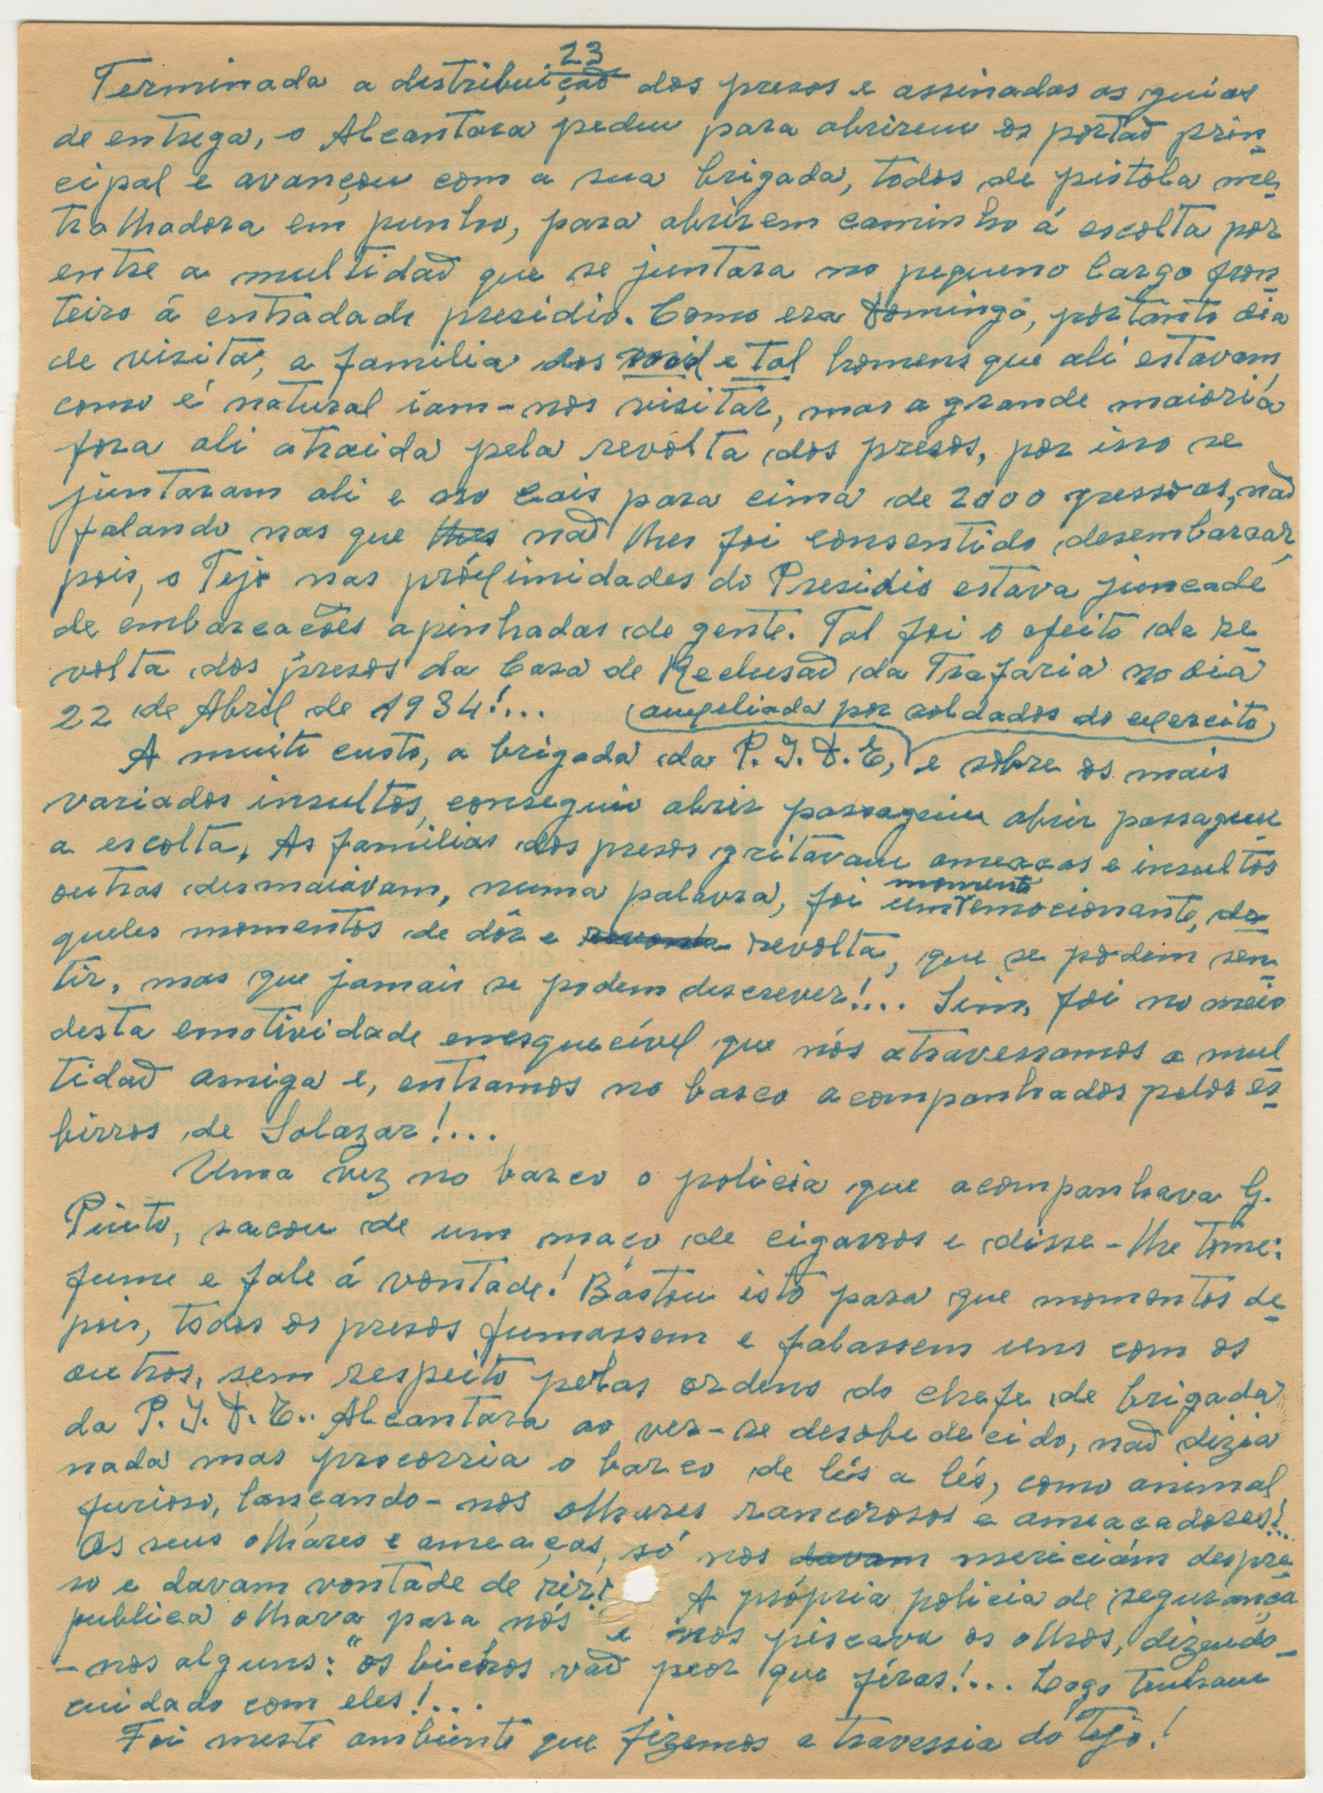 23
Terminada a distribuição dos presos e assinadas as guias
de entrega, o Alcantara pediu para abrirem os portaõ prin-
cipal e avançou com a sua brigada, todos de pistola me-
tralhadora em punho, para abrirem caminho á escolta por
entre a multidaõ que se juntara no pequeno largo fron-
teiro á entradade presidio. Como era Domingo, portanto dia
de visita, a familia dos e tal homens que ali estavam
como é natural iam-nos visitar, mas a grande maioria
fora ali atraida pela revolta dos presos, por isso se
juntaram ali e no Cais para cima de 2000 pessoas, naõ
falando nas que lhes naõ lhes foi consentido desembarcar,
pois, o Tejo nas próximidades do Presidio estava juncade
de embarcações apinhadas de gente. Tal foi o efeito da re
volta dos presos da Casa de Reclusaõ da Trafaria no dia
22 de Abril de 1934!... (auxiliada por soldados do exercito)
A muito custo, a brigada da P.I.D.E, e sobre os mais
variados insultos, conseguiu abrir passagem abrir passagem
a escolta. As familias dos presos gritavam ameaças e insultos
outras desmaiavam, numa palavra, foi um momento emocionante, da-
queles momentos de dôr e revolta, que se podem sen-
tir, mas que jamais se podem descrever!... Sim, foi no meio
desta emotividade enesquecível que nós atravessamos a mul
tidaõ amiga e, entramos no barco acompanhados pelos es-
birros de Salazar!...
Uma vez no barco o policia que acompanhava G.
Pinto, sacou de um maço de cigarros e disse-lhe tome:
fume e fale á vontade! Bastou isto para que momentos de-
pois, todos os presos fumassem e falassem uns com os
outros, sem respeito pelas ordens do chefe de brigada
da P.I.D.E.. Alcantara ao ver-se desobedecido, naõ dizia
nada mas procorria o barco de lés a lés, como animal
furioso, lançando-nos olhares rancorosos e ameaçadores!...
Os seus olhares e ameaças, só nos davam mereciám despre-
so e davam vontade de rir! A própria policia de segurança
publica olhava para nós e nos piscava os olhos, dizendo-
-nos alguns: "os bicóros vaõ peor que féras!... Logo tenham
cuidado com eles!...
Foi neste ambiente que fizemos a travessia do Tejo!